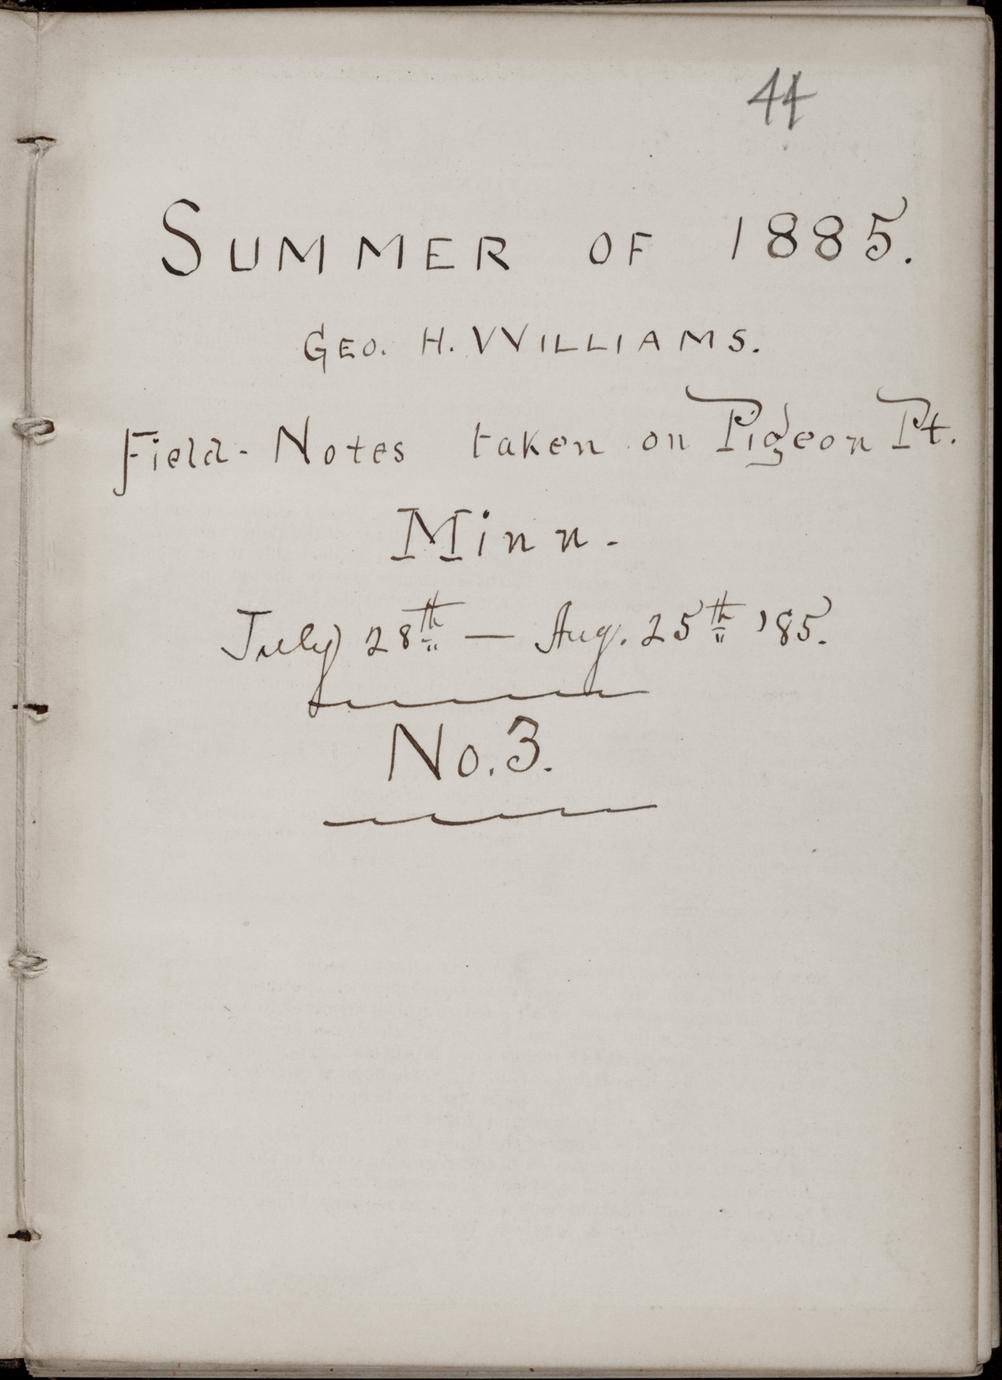 44
SUMMER OF 1885.
GEO. H. WILLIAMS.
Field-Notes taken on Pigeon Pt.
Minn.
July 28th — Aug. 25th '85.
No. 3.